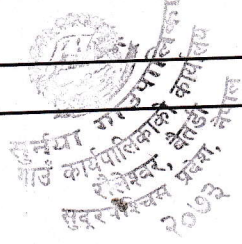 सुर्नया गाउँपालिका
गाउँ कार्यपालिकाको कार्यालय
सुदूरपश्चिम प्रदेश, नेपाल
२०७३